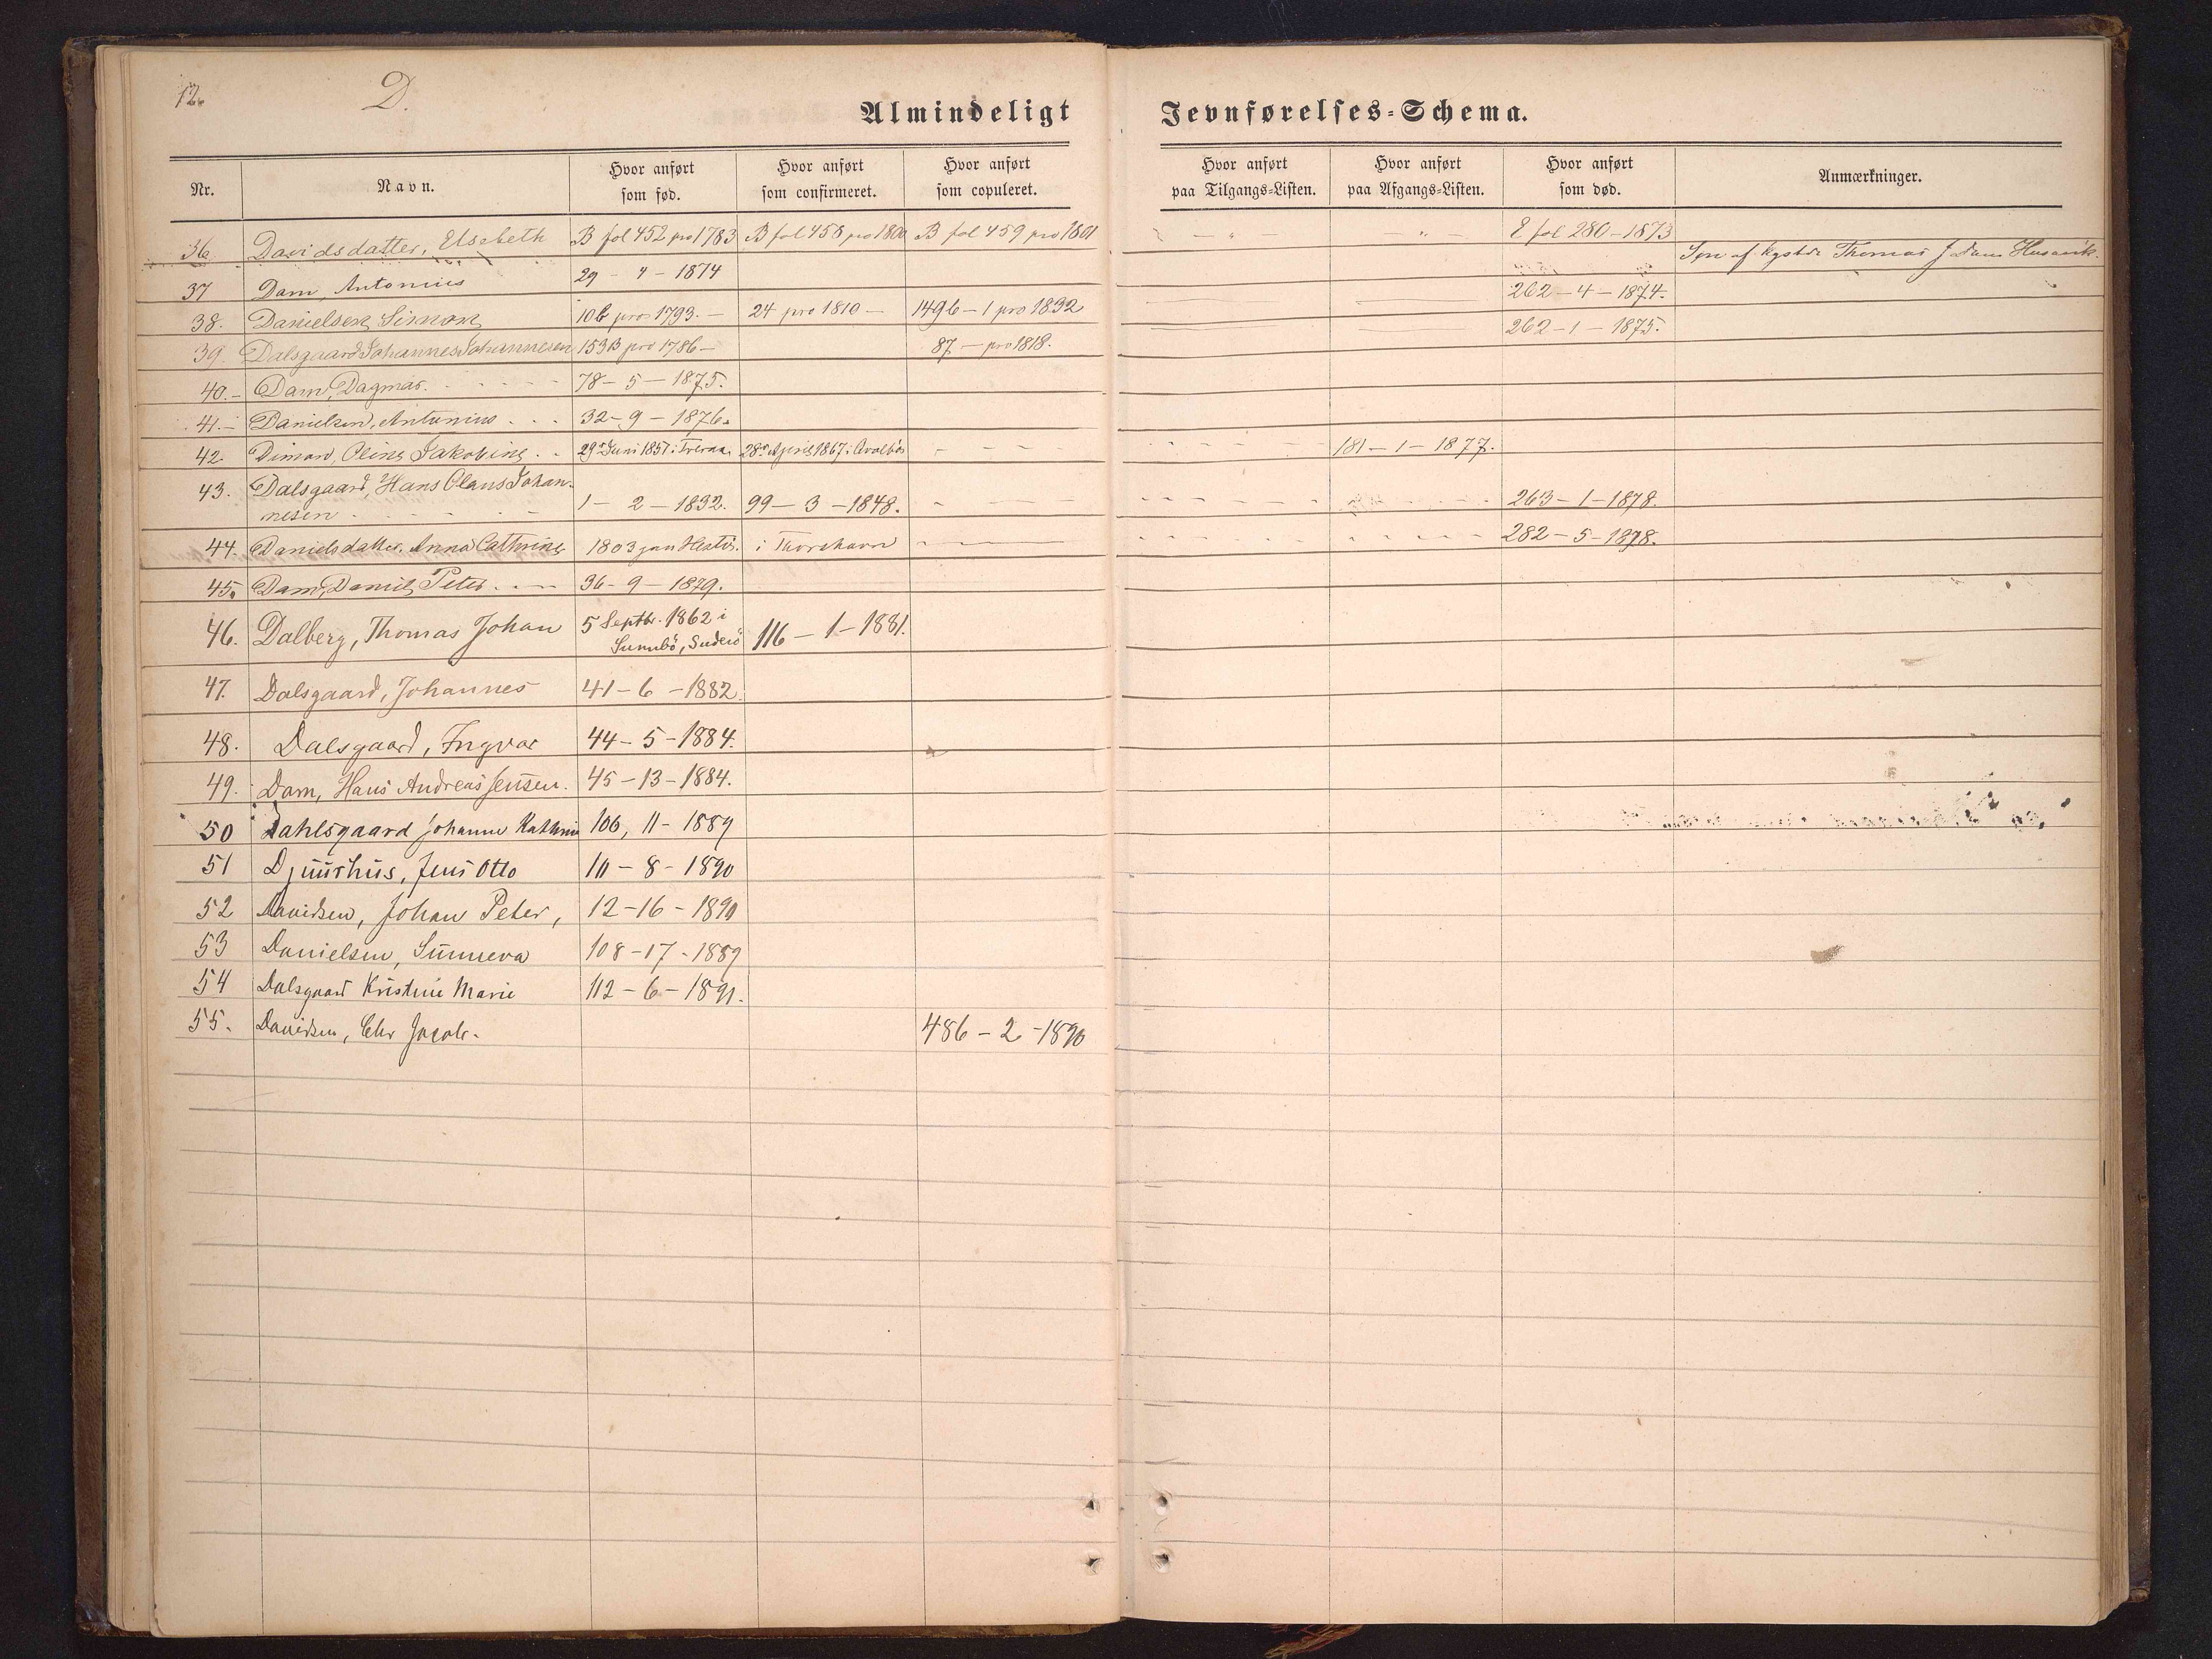 12.
D.
Almindeligt Jevnførelses-Schema.
Nr. Navn. Hvor anført som fød. Hvor anført som confirmeret. Hvor anført som copuleret. Hvor anført paa Tilgangs-Listen. Hvor anført paa Afgangs-Listen. Hvor anført som død. Anmærkninger.
36 Davidsdatter, Elsebeth B fol 452 pro 1783 B fol 458 pro 1800 B fol 459 pro 1801 — " — — " — E fol 280 - 1873
37 Dam, Antonius 29 - 4 - 1874 262 - 4 - 1874. Søn af Thomas J Dam Husavik.
38. Danielsen, Simon 106 pro 1793. — 24 pro 1810 — 1496 - 1 pro 1832 262 - 1 - 1875.
39. Dalsgaard Johannes Johannesen 153B pro 1786 — 87 — pro 1818.
40. - Dam, Dagmar. 78 - 5 - 1875.
41. - Danielsen, Antonius . . . 32 - 9 - 1876.
42. Dimon, Oline Jakobine . . 29de Juni 1851 i 28de April 1867 i Qvalbø 181 - 1 - 1877.
43. Dalsgaard, Hans Olaus Johan-
nesen 1 - 2 - 1832. 99 - 3 - 1848. 263 - 1 - 1878.
44. Danielsdatter, Anna Cathrine 1803 paa Hestø. i Thorshavn 282 - 5 - 1878.
45. Dam, Daniel Peter . . — 36 - 9 - 1879.
46. Dalberg, Thomas Johan 5 Septbr. 1862 i
Sumbö, Suderö 116 - 1 - 1881.
47. Dalsgaard, Johannes 41 - 6 - 1882.
48. Dalsgaard, Ingvar 44 - 5 - 1884.
49. Dam, Hans Andreas Jensen. 45 - 13 - 1884.
50 Dahlsgaard Johanne Kathrine 106, 11 - 1889
51 Djuurhus, Jens Otto 10 - 8 - 1890
52 Davidsen, Johan Peter, 12 - 16 - 1890
53 Danielsen, Sunneva 108 - 17 - 1889
54 Dalsgaard Kristine Marie 112 - 6 - 1891.
55. Davidsen, Chr Jacob. 486 - 2 - 1890